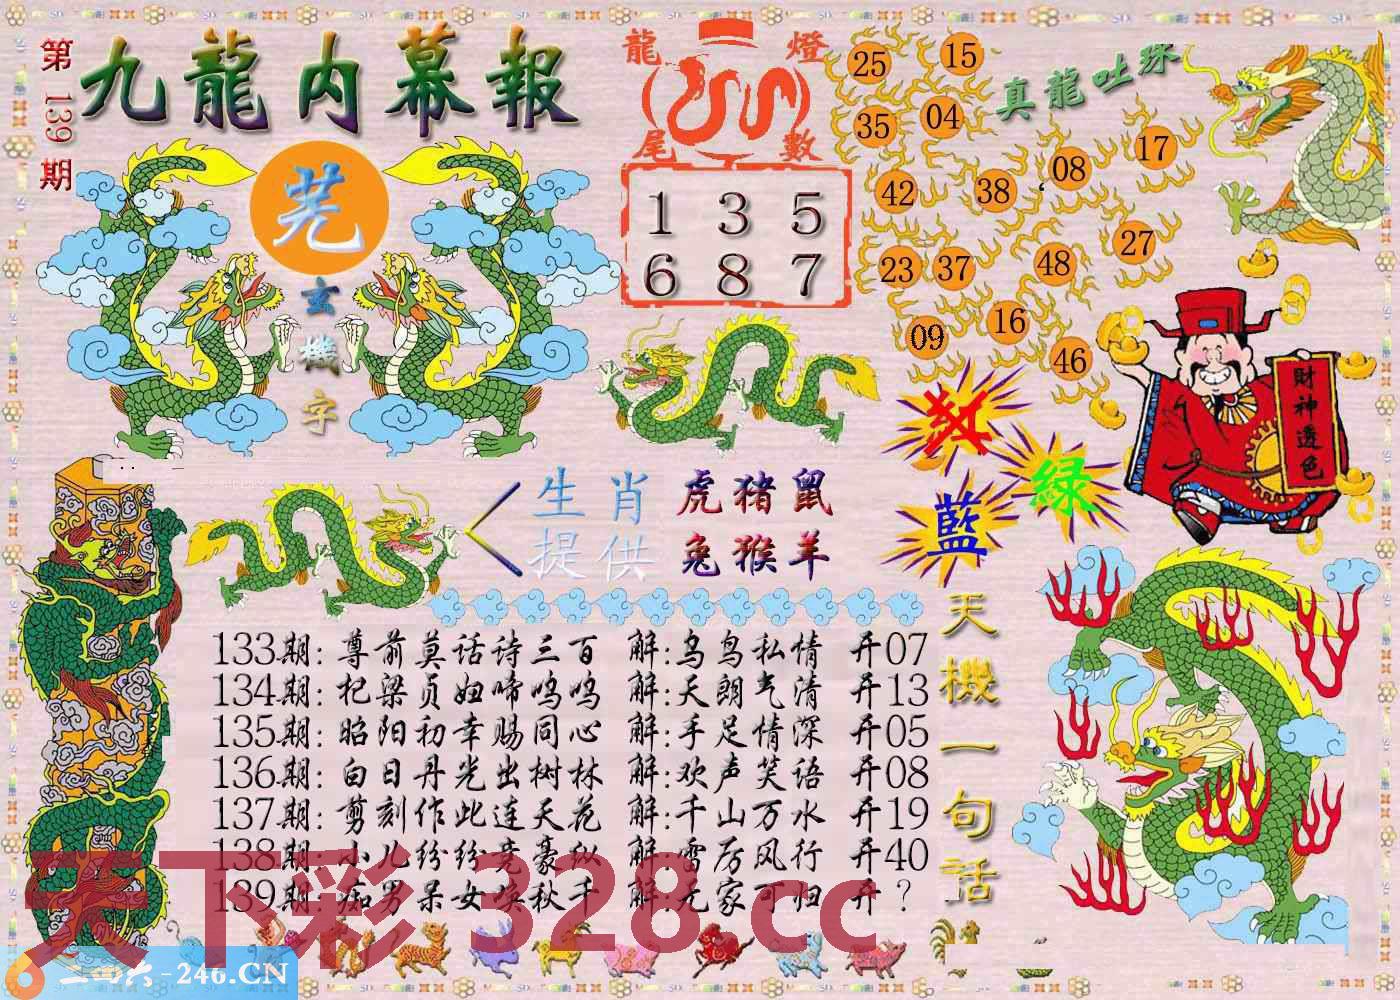 第139期
九龍内幕報
芜
玄機字
龍燈
尾數
1 3 5
6 8 7
真龍吐珠
25 15
35 04
42 38 08 17
23 37 48 27
09 16 46
財神透色
红
绿
藍
生肖
提供
虎猪鼠
兔猴羊
天機一句話
133期:尊前莫话诗三百 解:鸟鸟私情 开07
134期:杞梁贞妇啼呜呜 解:天朗气清 开13
135期:昭阳初幸赐同心 解:手足情深 开05
136期:白日丹光出树林 解:欢声笑语 开08
137期:剪刻作此连天花 解:千山万水 开19
138期:小儿纷纷竞豪纵 解:雷厉风行 开40
139期:痴男呆女唤秋千 解:无家可归 开?
天下彩 328.cc
二四六-246.CN